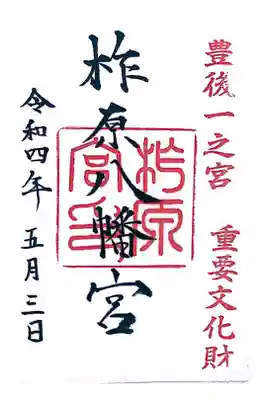 豊後一之宮 重要文化財
柞原八幡宮
柞原宮印
令和四年 五月三日